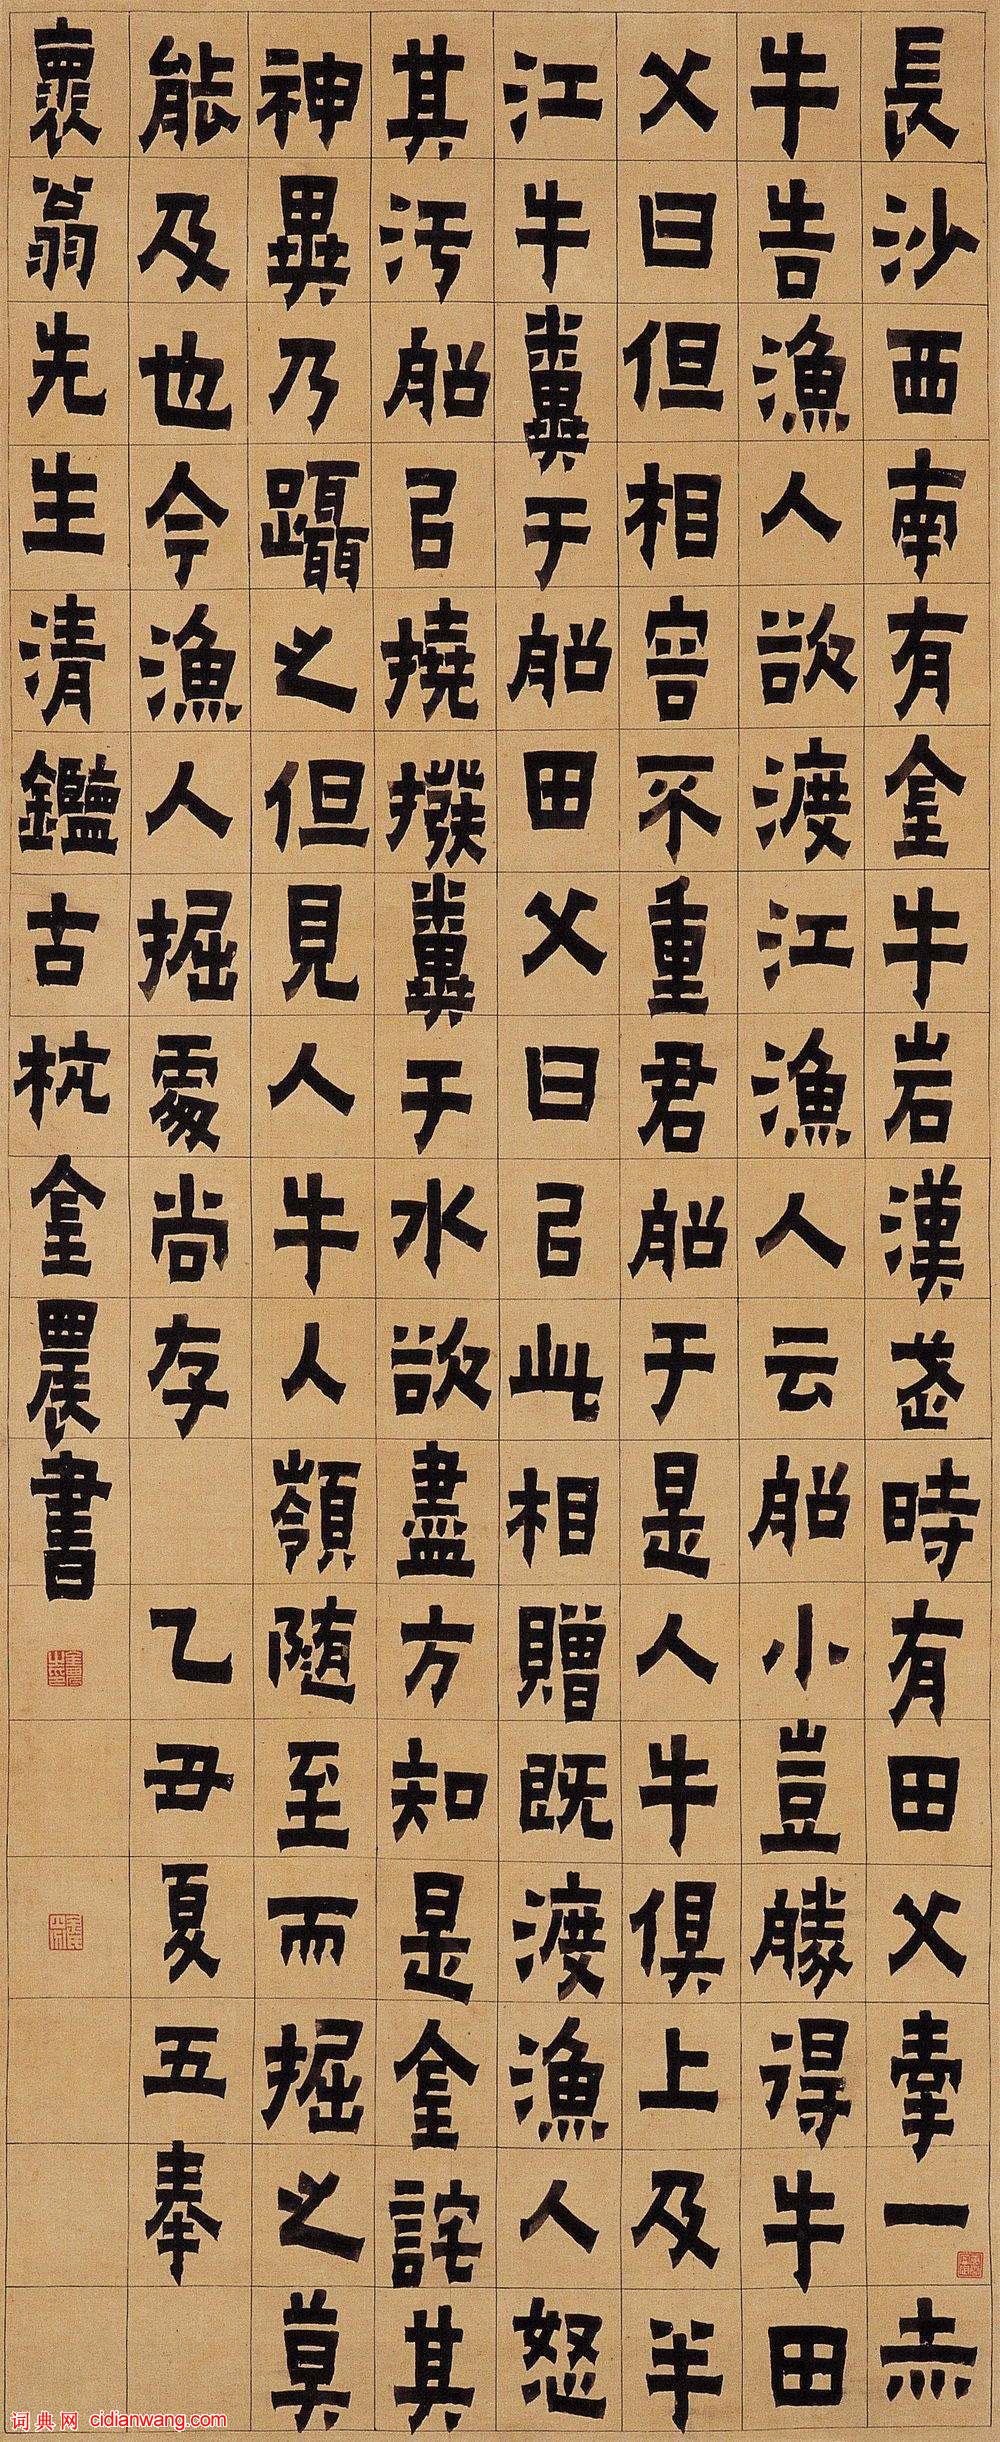 長沙西南有金牛岩漢武時有田父牽一赤
牛告漁人欲渡江漁人云船小豈勝得牛田
父曰但相容不重君船于是人牛俱上及半
江牛糞于船田父曰以此相贈既渡漁人怒
其汚船以撓撥糞于水欲盡方知是金詫其
神異乃躡之但見人牛人嶺隨至而掘之莫
能及也今漁人掘處尚存 乙丑夏五奉
褱翁先生清鑑古杭金農書
词典网 cidianwang.com